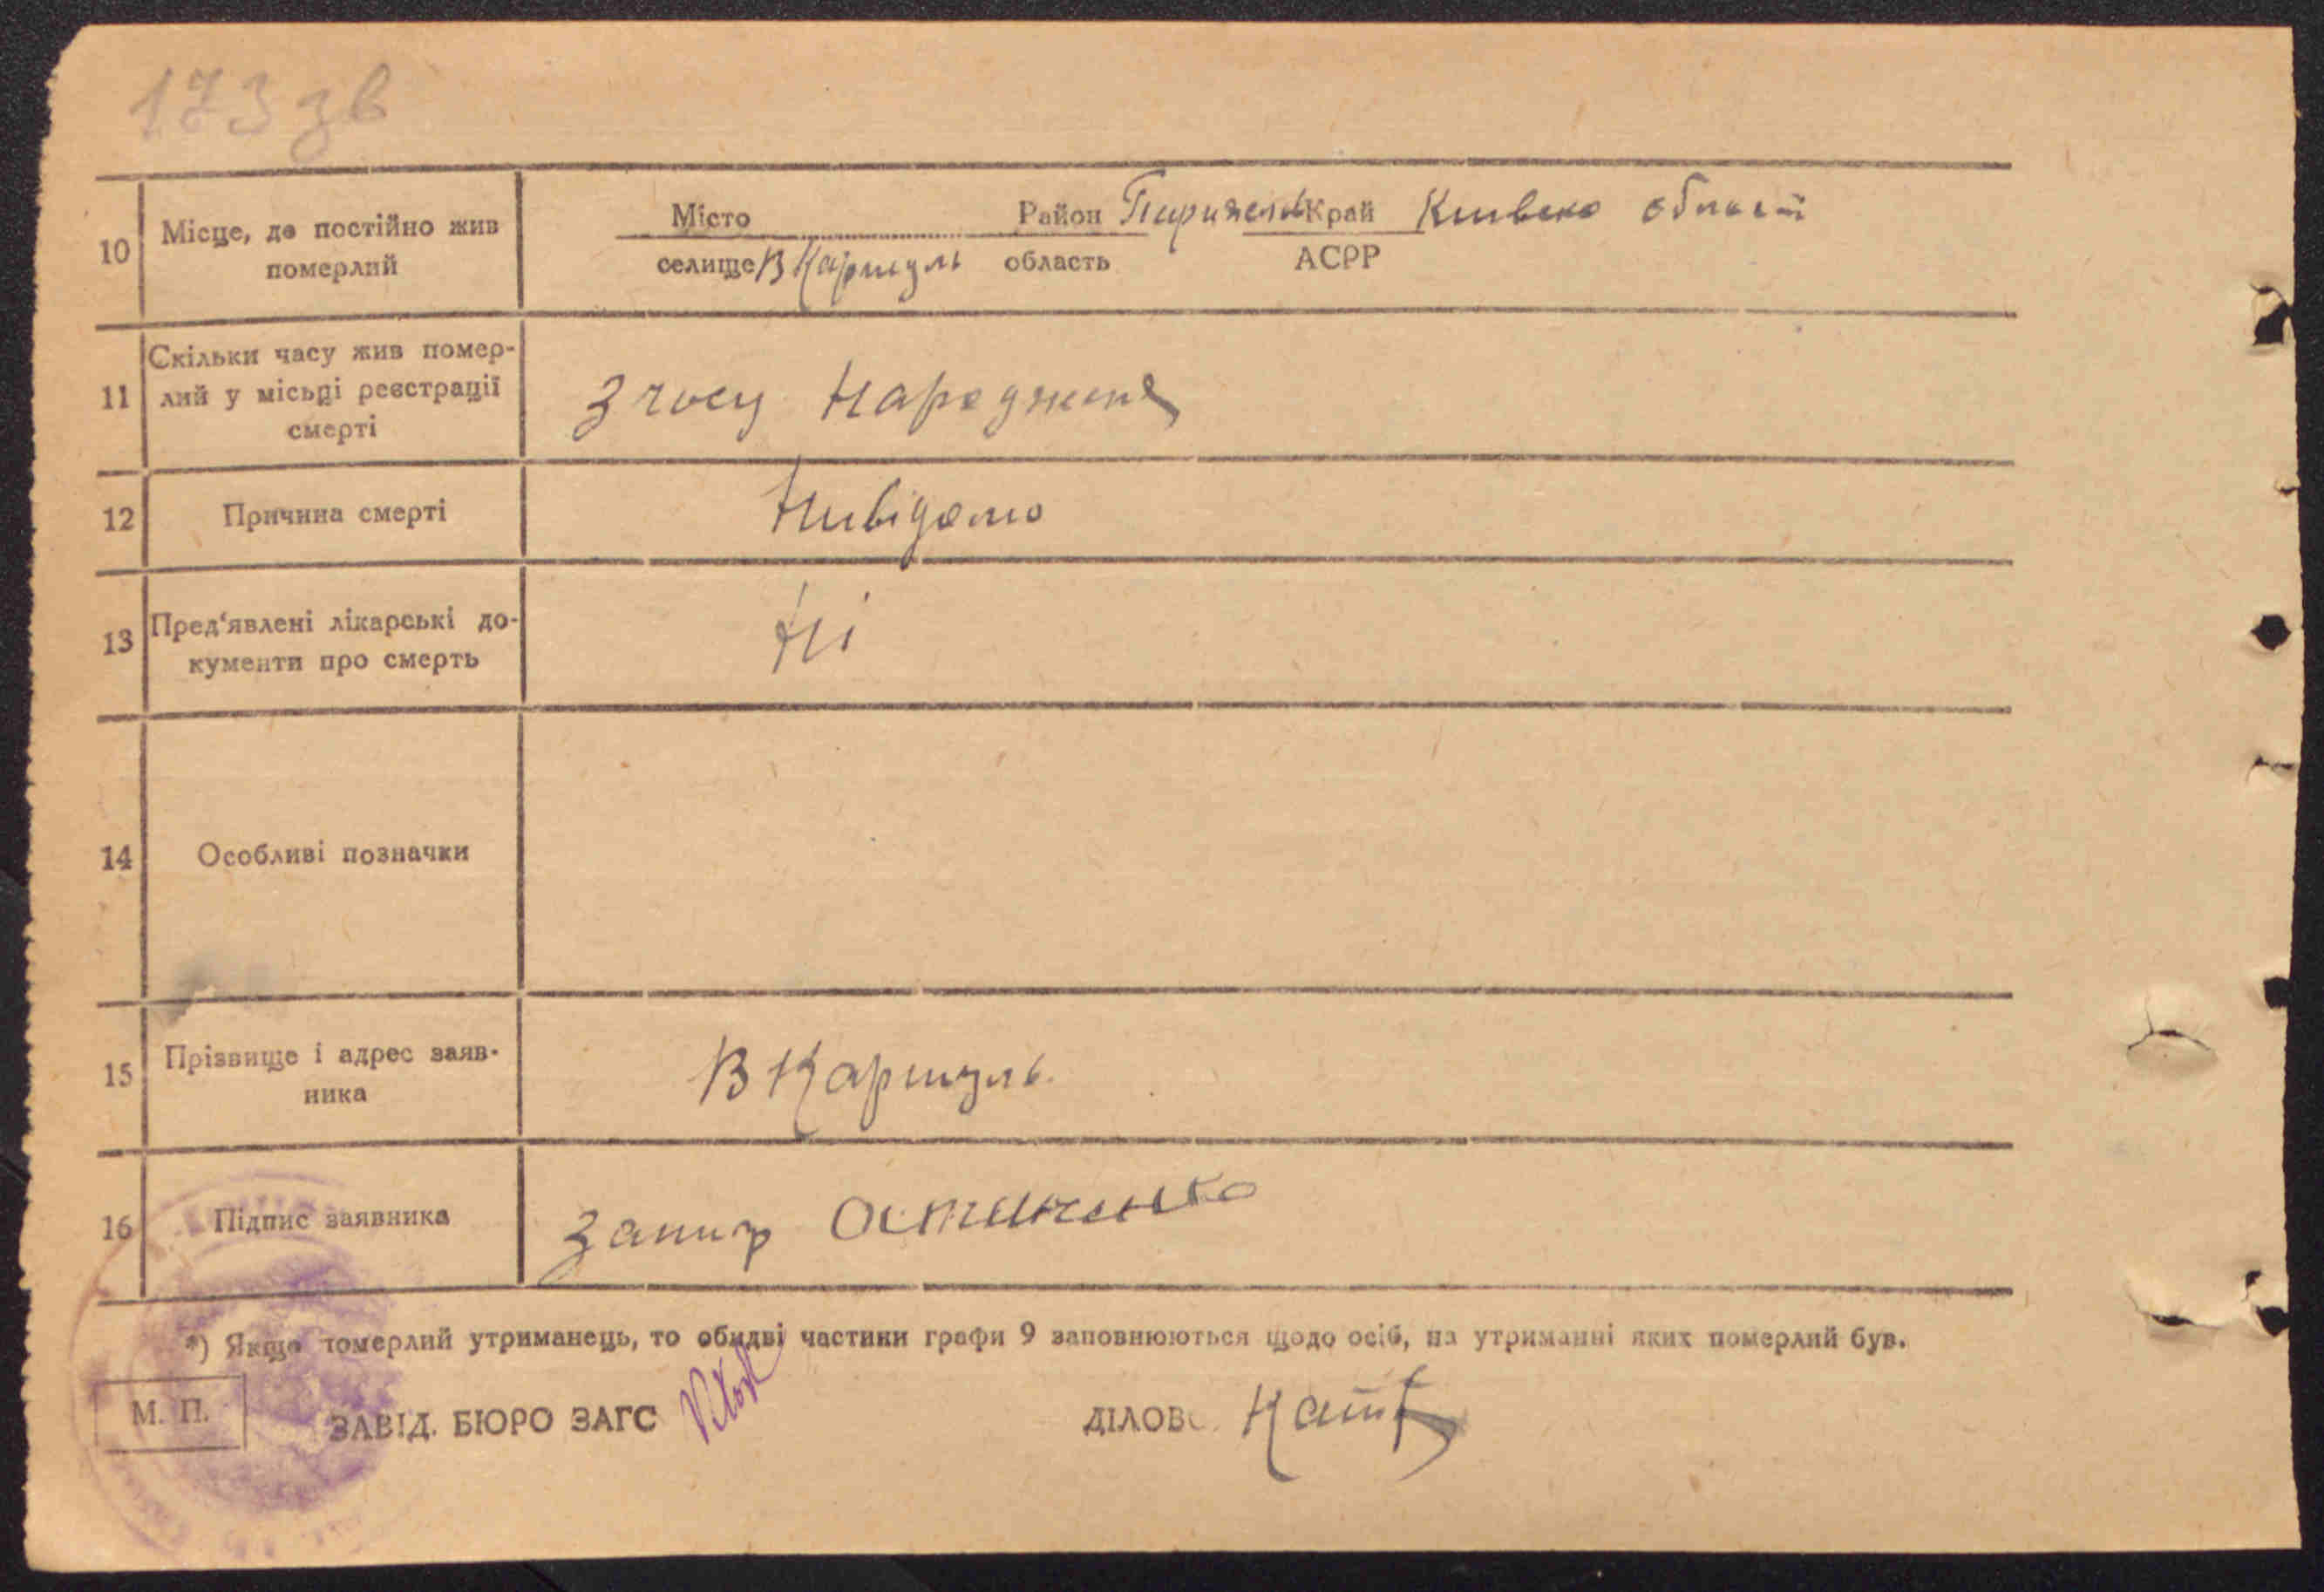 173 зв
10
Місце, де постійно жив
померлий
Місто Район Край Киівсько області
селище В Каратуль область АСРР
11
Скільки часу жив помер-
лий у місьці реєстрації
смерті
З часу народження
12
Причина смерті
Нивідомо
13
Пред‘явлені лікарські до-
кументи про смерть
Ні
14
Особливі позначки
15
Прізвище і адрес заяв-
ника
В Каратуль
16
Підпис заявника
*) Якщо томерлий утриманець, то обидві частини графи 9 заповнюються щодо осіб, на утриманні яких померлий був.
М. П.
ЗАВІД. БЮРО ЗАГС
ДІЛОВ